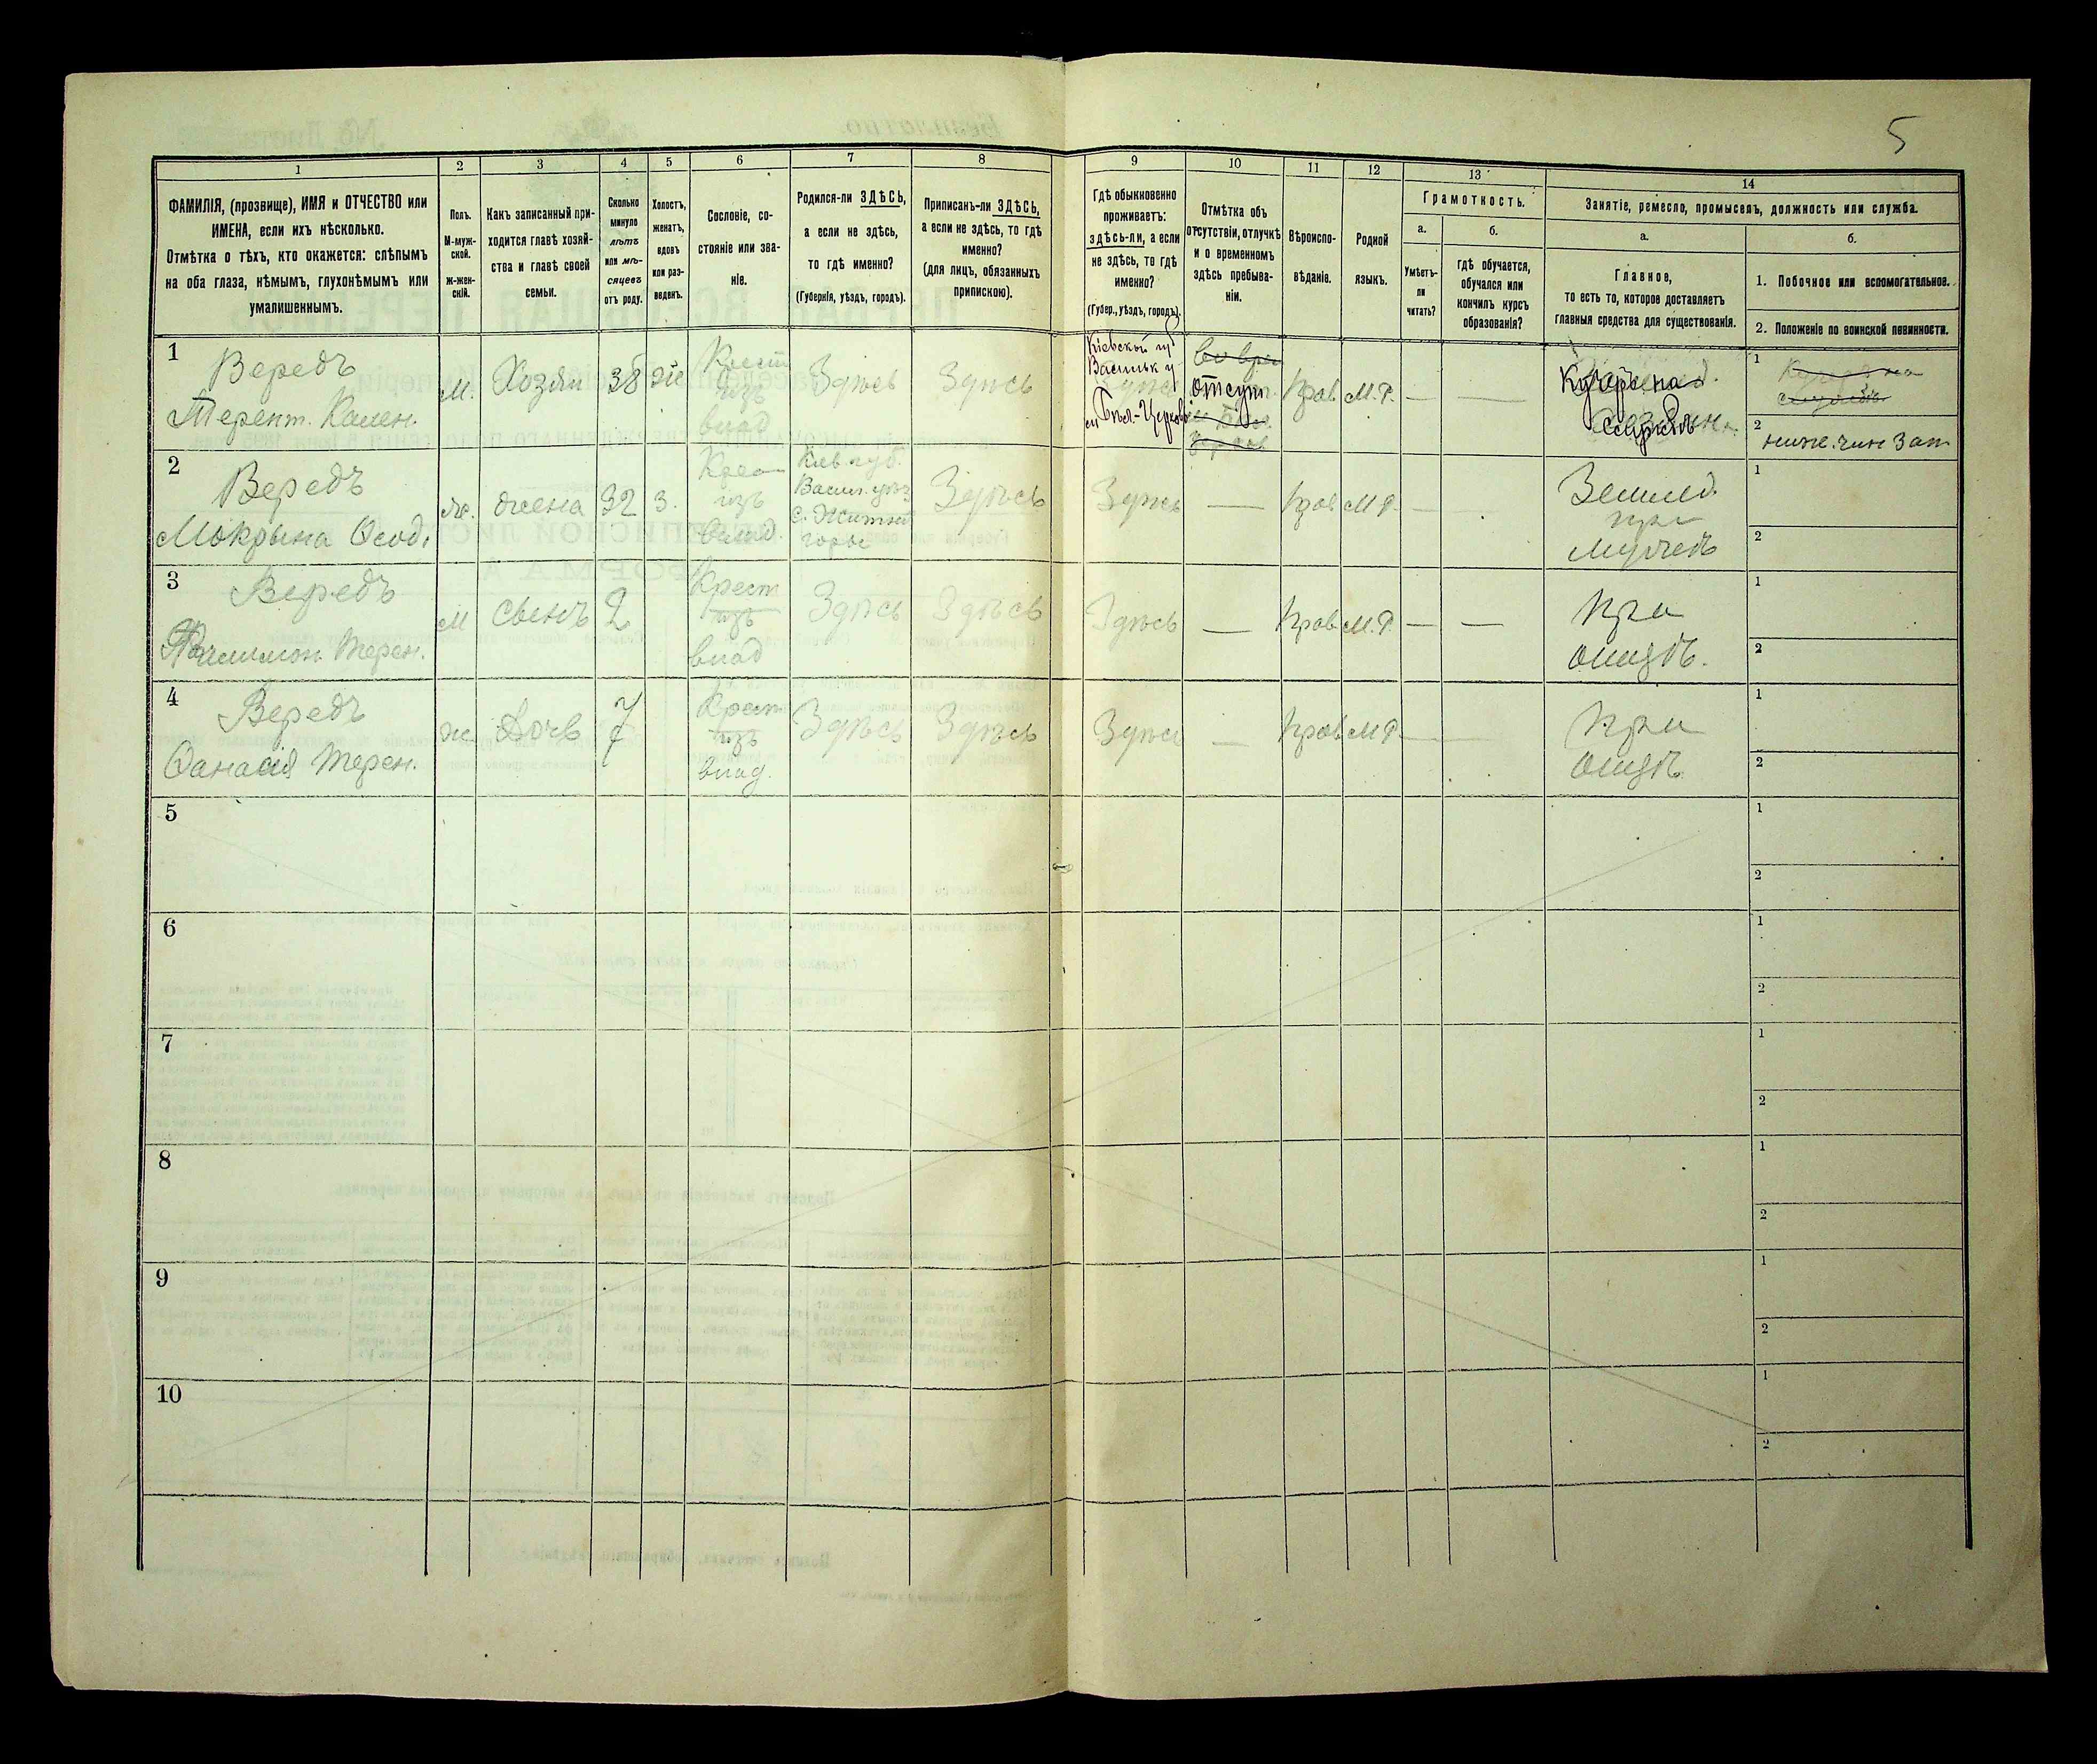 5
1
2
3
4
5
6
7
8
9
10
11
12
13
14
ФАМИЛІЯ, (прозвище), ИМЯ и ОТЧЕСТВО или
ИМЕНА, если ихъ нѣсколько.
Отмѣтка о тѣхъ, кто окажется: слѣпымъ
на оба глаза, нѣмымъ, глухонѣмымъ или
умалишеннымъ.
Полъ.
М-муж-
ской.
Ж-жен-
скій.
Какъ записанный при-
ходится главѣ хозяй-
ства и главѣ своей
семьи.
Сколько
минуло
лѣтъ
или мѣ-
сяцевъ
отъ роду.
Холостъ,
женатъ,
вдовъ
или раз-
веденъ.
Сословіе, со-
стояніе или зва-
ніе.
Родился-ли ЗДѢСЬ,
а если не здѣсь,
то гдѣ именно?
(Губернія, уѣздъ, городъ).
Приписанъ-ли ЗДѢСЬ,
а если не здѣсь, то гдѣ
именно?
(для лицъ, обязанныхъ
припискою).
Гдѣ обыкновенно
проживаетъ:
здѣсь-ли, а если
не здѣсь, то гдѣ
именно?
(Губер., уѣздъ, городъ).
Отмѣтка объ
отсутствіи, отлучкѣ
и о временномъ
здѣсь пребыва-
ніи.
Вѣроиспо-
вѣданіе.
Родной
языкъ.
Грамотность.
а.
Умѣетъ-
ли
читать?
б.
гдѣ обучается,
обучался или
кончилъ курсъ
образованія?
Занятіе, ремесло, промыселъ, должность или служба.
а.
Главное,
то есть то, которое доставляетъ
главныя средства для существованія.
б.
1. Побочное или вспомогательное.
2. Положеніе по воинской повинности.
1
Вередъ
Терент. Камен.
м.
Хозяи
38
же
Крест
изъ
влад
Здѣсь
Здѣсь
Кіевской губ
Васильк у
м Бѣл-Церковь
отсут
Прав
М.Р.
—
—
Кучеръ на
службѣ
1
2
ниж. чин Зап
2
Вередъ
Мокрына Феод.
ж.
жена
32
З.
Крес
изъ
влад.
Кіев. губ.
Васил. уѣз
с. Житней
горы
Здѣсь
Здѣсь
—
Прав
М Р.
—
Землед.
при
мужѣ
1
2
3
Вередъ
Филимон. Терен.
м
сынъ
2
Крест
изъ
влад
Здѣсь
Здѣсь
Здѣсь
—
Прав.
М.Р.
—
—
При
отцѣ.
1
2
4
Вередъ
Фанасія Терен.
ж
Дочь
7
Крест
изъ
влад.
Здѣсь
Здѣсь
Здѣсь
—
Прав.
М Р.
—
При
отцѣ
1
2
5
1
2
6
1
2
7
1
2
8
1
2
9
1
2
10
1
2